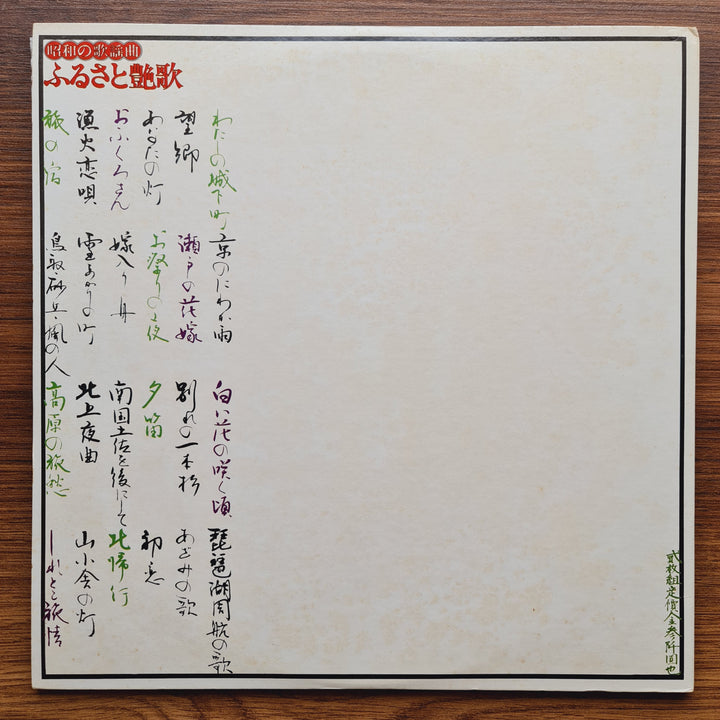 昭和の歌謡曲
ふるさと艶歌
わたしの城下町
望郷
あなたの灯
おふくろさん
漁火恋唄
旅の宿
京のにわか雨
瀬戸の花嫁
お祭りの夜
嫁入り舟
雪あかりの町
鳥取・砂丘・風の人
白い花の咲く頃
別れの一本杉
夕笛
南国土佐を後にして
北上夜曲
高原の旅愁
琵琶湖周航の歌
あざみの歌
初恋
北帰行
山小舎の灯
しれとこ旅情
貳枚組定價金参阡圓也